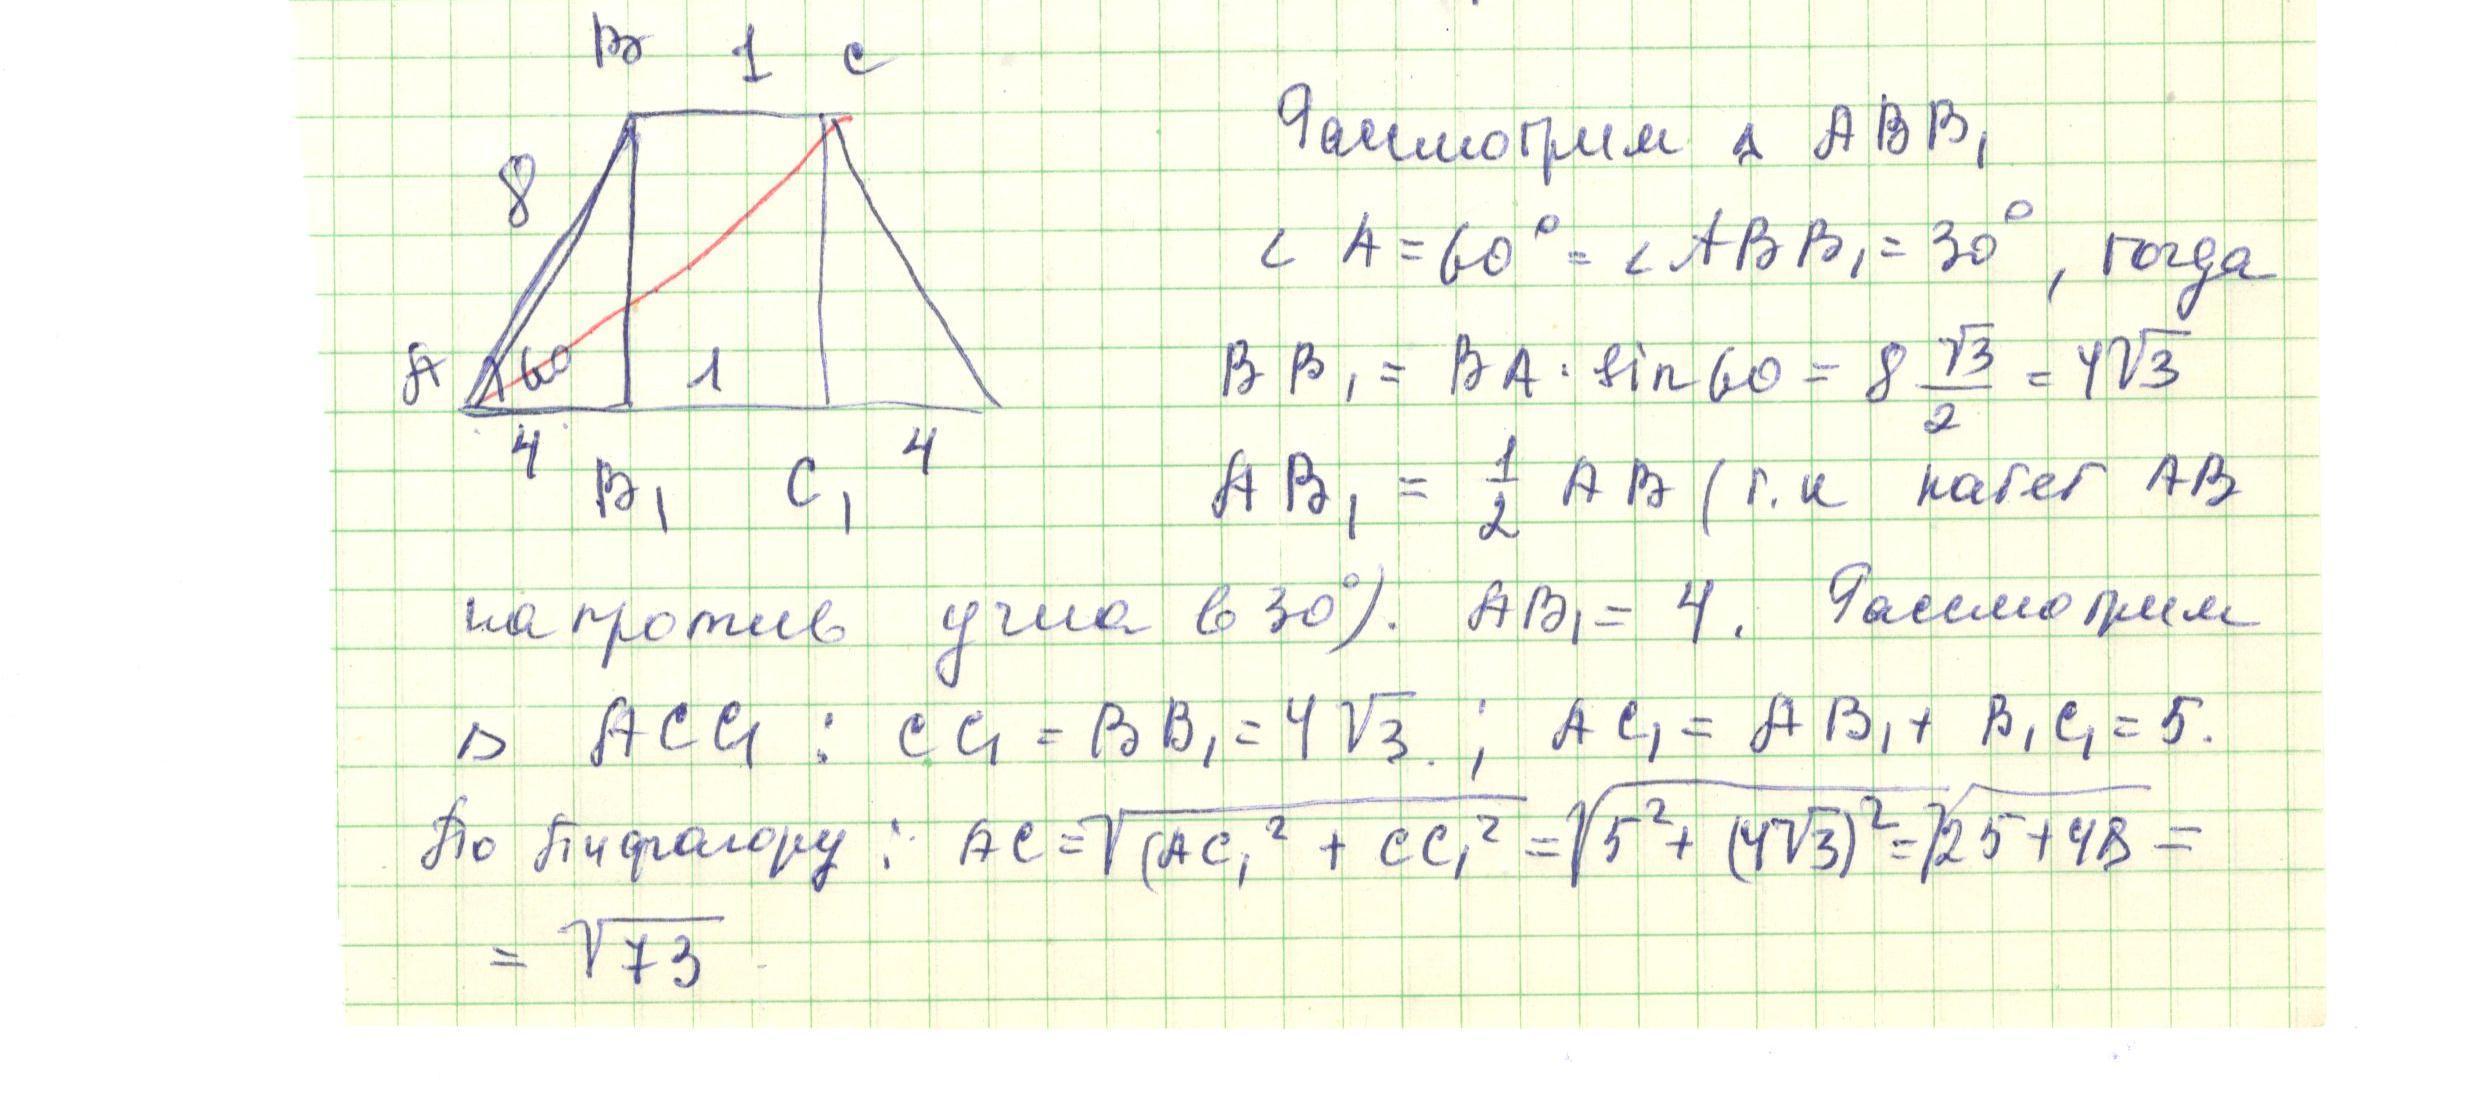 B 1 C
8
A 60 1
4 B₁ C₁ 4
Рассмотрим △ ABB₁
∠ A = 60° = ∠ ABB₁ = 30°, тогда
BB₁ = BA · sin 60 = 8 √3/2 = 4√3
AB₁ = 1/2 AB (т.к катет AB
напротив угла в 30°). AB₁ = 4. Рассмотрим
△ ACC₁ : CC₁ = BB₁ = 4√3 ; AC₁ = AB₁ + B₁C₁ = 5.
По Пифагору : AC = √(AC₁² + CC₁² = √5² + (4√3)² = √25 + 48 =
= √73